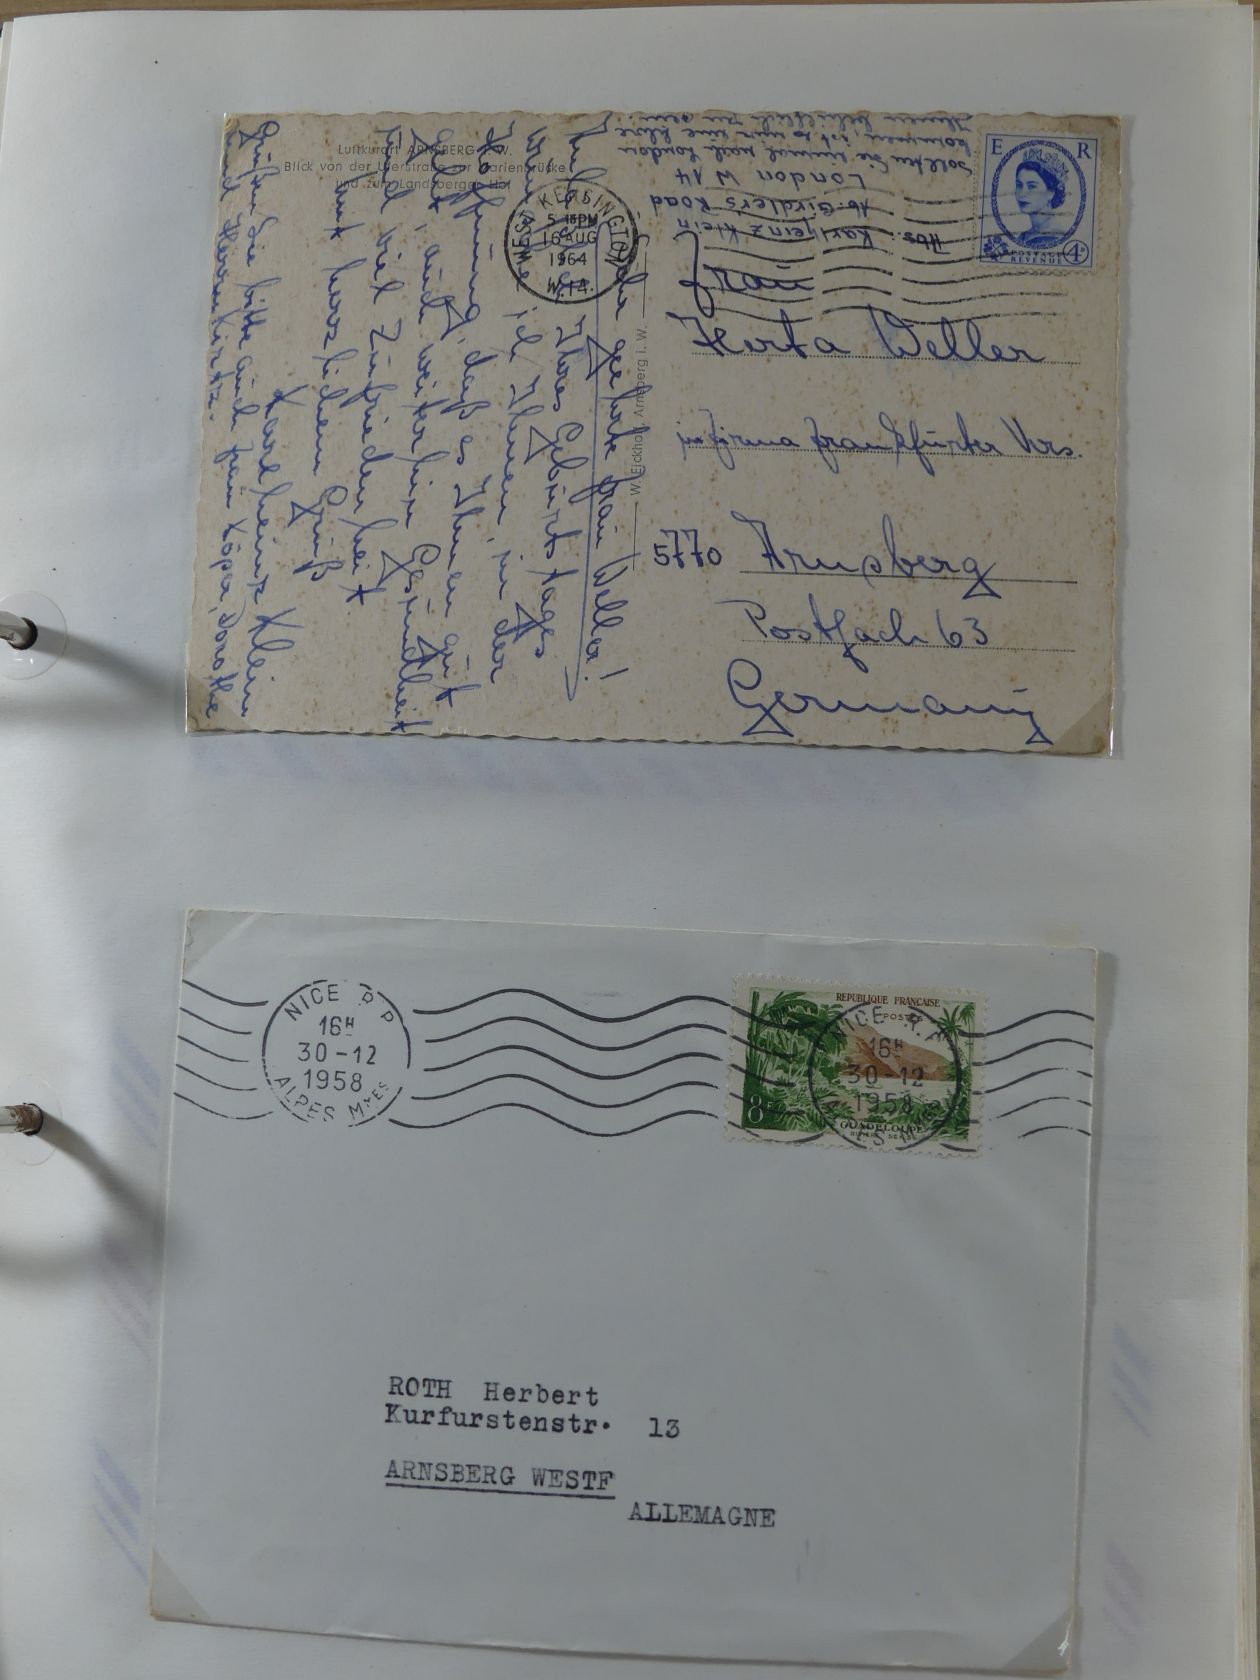 Luftkurort ARNSBERG i. W.
Blick von der Uferstraße zur Marienbrücke
und zum Landsberger Hof
W. Eickhoff, Arnsberg i. W.
Sehr geehrte Frau Weller!
Ihres Geburtstages
ich Ihnen, in der
Hoffnung, daß es Ihnen gut
geht, auch weiterhin Gesundheit
und viel Zufriedenheit
Mit herzlichem Gruß
Karlheinz Klein
Grüßen Sie bitte auch Frau Köper, Dorothe
und Herrn
WEST KENSINGTON
5-15PM
16 AUG
1964
W.14.
E R
POSTAGE
REVENUE
4D
Abs: Karlheinz Klein
16 Girdler's Road
London W 14
Sollten Sie einmal nach London
kommen, ist es mir eine
Ihnen behilflich zu sein.
Frau
Herta Weller
in Firma Frankfurter Vers.
5770 Arnsberg
Postfach 63
Germany
NICE R.P
16H
30-12
1958
ALPES MMES
REPUBLIQUE FRANÇAISE
POSTES
8F
GUADELOUPE
NICE R.P
16H
30-12
1958
ROTH Herbert
Kurfurstenstr. 13
ARNSBERG WESTF
ALLEMAGNE